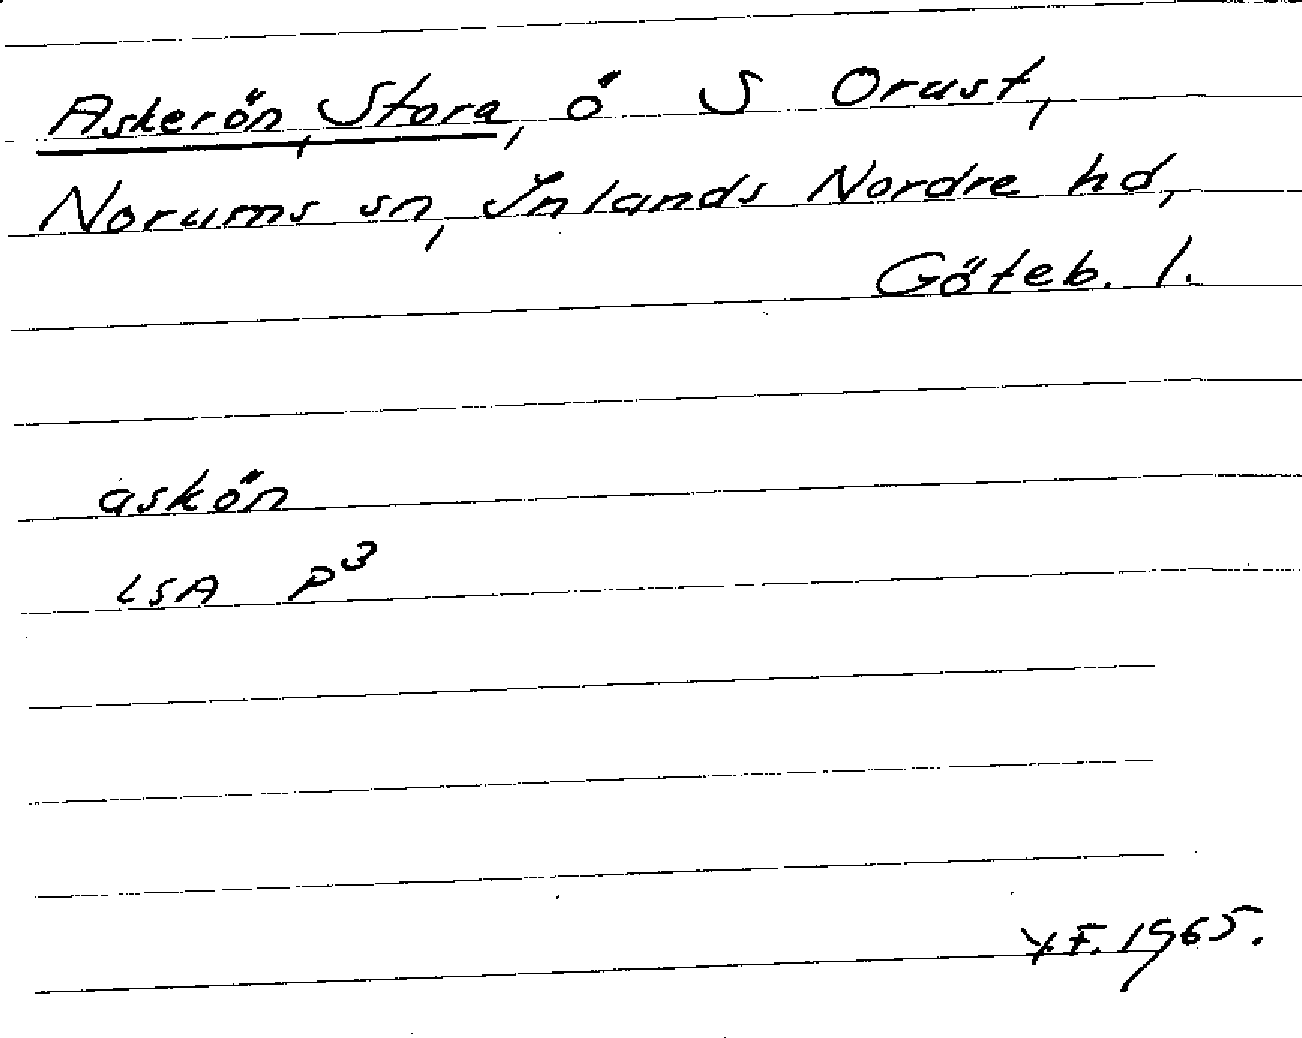 Askerön, Stora, ö S Orust,
Norums sn, Inlands Nordre hd,
Göteb. l.
askön
LSA P³
Y.F. 1965.